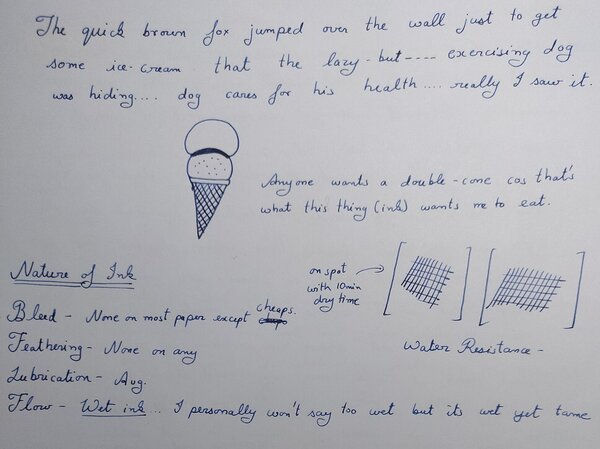 The quick brown fox jumped over the wall just to get
some ice-cream that the lazy-but---- exercising dog
was hiding.... dog cares for his health .... really I saw it.
Anyone wants a double-cone cos that's
what this thing (ink) wants me to eat.
Nature of Ink
on spot
with 10min
dry time
Water Resistance -
Bleed - None on most paper except cheaps.
Feathering - None on any
Lubrication - Avg.
Flow - Wet ink... I personally won't say too wet but its wet yet tame